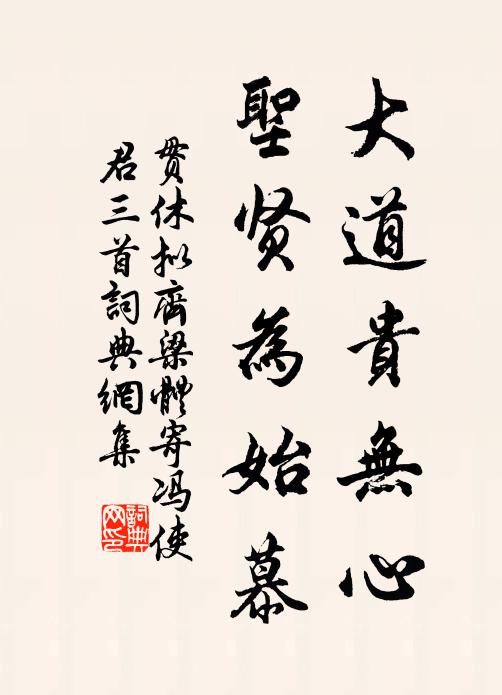 大道貴無心
聖贤為始慕
贯休拟齊梁體寄冯使
君三首詞典網集
詞典
网印